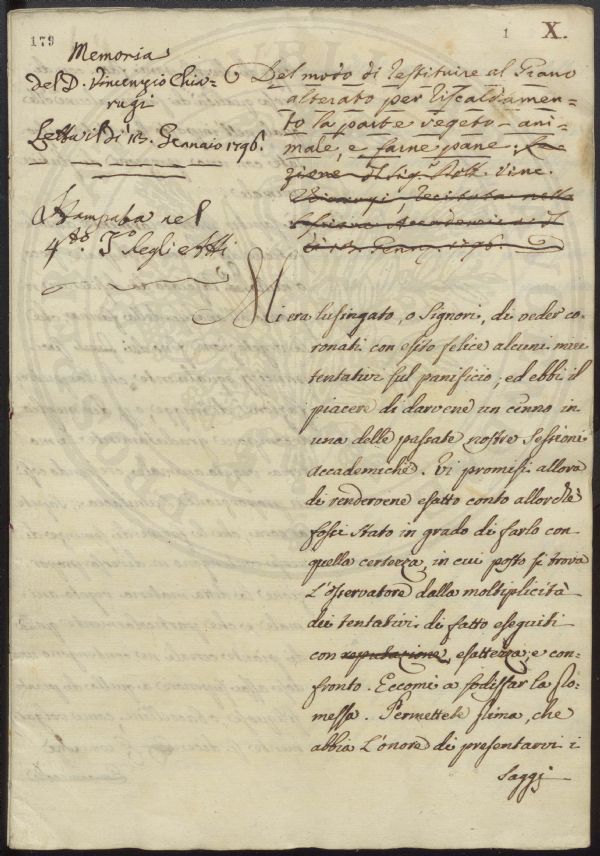 179
1
X.
Memoria
del D. Vincenzio Chia-
rugi
Letta il dì 13. Gennaio 1796.
Stampata nel
4.to T.o degli Atti
Del modo di restituire al Grano
alterato per riscaldamen=
to la parte vegeto-ani=
male, e farne pane. Le=
zione del Sig.r Dott. Vinc.
Chiarugi, recitata nella
dì 13. Genn. 1796.
Mi era lusingato, o Signori, di veder co=
ronati con esito felice alcuni miei
tentativi sul panificio; ed ebbi il
piacere di darvene un cenno in
una delle passate nostre Sessioni
Accademiche. Vi promisi allora
di rendervene esatto conto allorchè
fossi stato in grado di farlo con
quella certezza, in cui posto si trova
l'Osservatore dalla moltiplicità
dei tentativi di fatto eseguiti
con reputazione, esattezza, e con=
fronto. Eccomi a sodisfar la pro=
messa. Permettete prima, che
abbia l'onore di presentarvi i
saggj